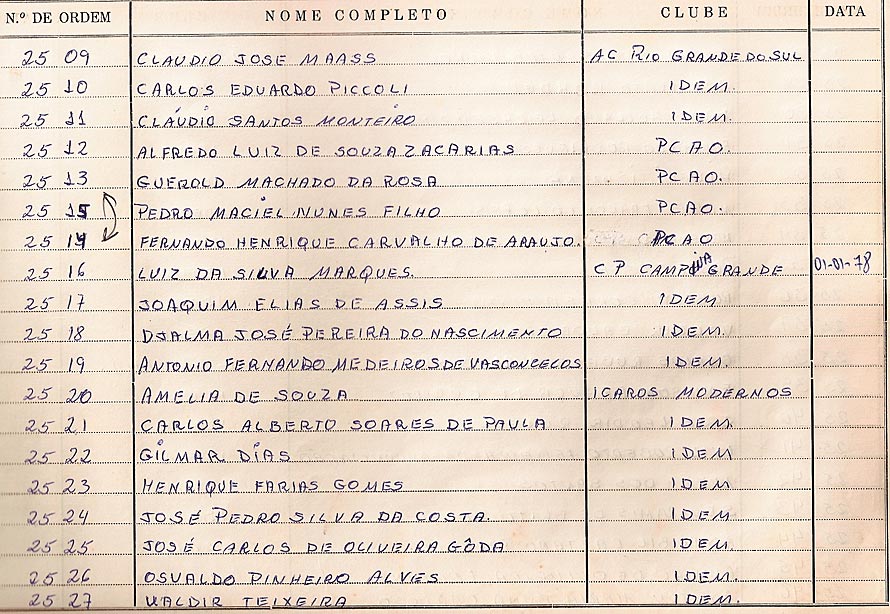 N.º DE ORDEM NOME COMPLETO CLUBE DATA
25 09 CLAUDIO JOSE MAASS AC RIO GRANDE DO SUL
25 10 CARLOS EDUARDO PICCOLI IDEM.
25 11 CLÁUDIO SANTOS MONTEIRO IDEM.
25 12 ALFREDO LUIZ DE SOUZA ZACARIAS PCAO.
25 13 GUEROLD MACHADO DA ROSA PCAO.
25 15 PEDRO MACIEL NUNES FILHO PCAO.
25 14 FERNANDO HENRIQUE CARVALHO DE ARAUJO. PCAO
25 16 LUIZ DA SILVA MARQUES. CP CAMPINA GRANDE 01-01-78
25 17 JOAQUIM ELIAS DE ASSIS IDEM
25 18 DJALMA JOSÉ PEREIRA DO NASCIMENTO IDEM.
25 19 ANTONIO FERNANDO MEDEIROS DE VASCONCELOS IDEM.
25 20 AMELIA DE SOUZA ICAROS MODERNOS
25 21 CARLOS ALBERTO SOARES DE PAULA IDEM
25 22 GILMAR DIAS IDEM
25 23 HENRIQUE FARIAS GOMES IDEM
25 24 JOSÉ PEDRO SILVA DA COSTA. IDEM
25 25 JOSÉ CARLOS DE OLIVEIRA GÔDA IDEM.
25 26 OSVALDO PINHEIRO ALVES IDEM.
25 27 VALDIR TEIXEIRA IDEM.